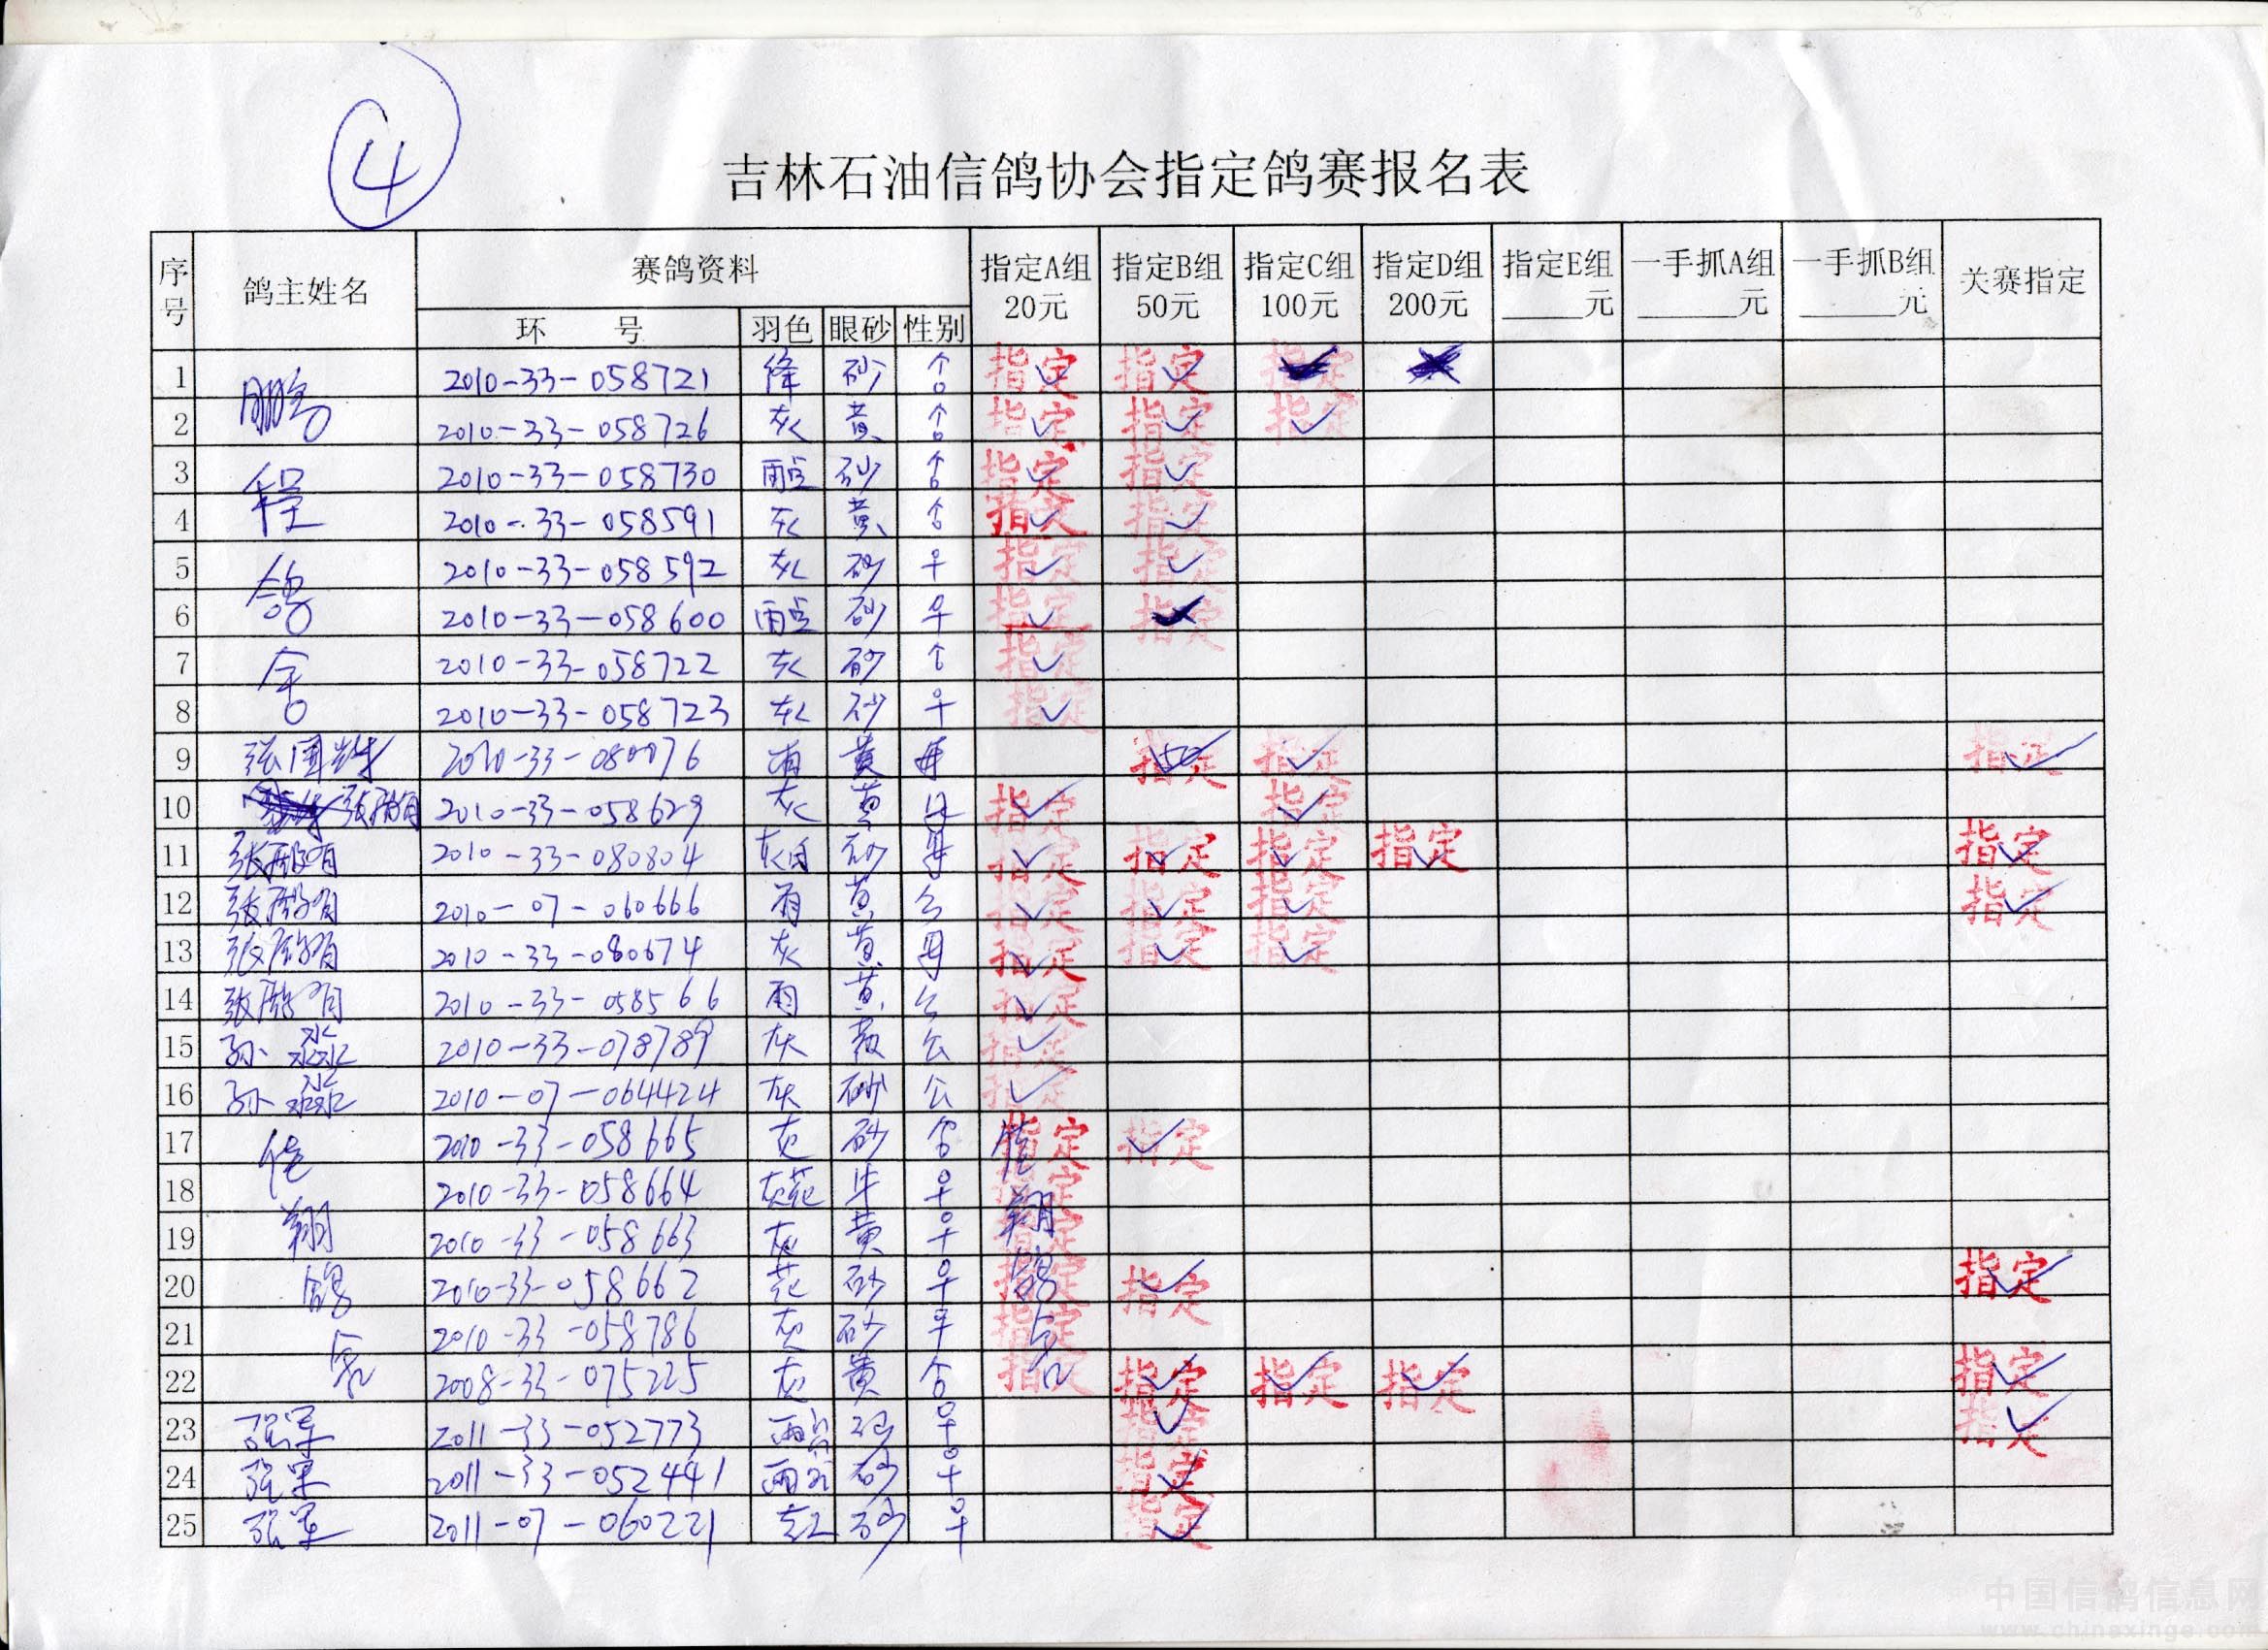 ④
吉林石油信鸽协会指定鸽赛报名表
序号 鸽主姓名 赛鸽资料 指定A组 20元 指定B组 50元 指定C组 100元 指定D组 200元 指定E组 _____元 一手抓A组 _____元 一手抓B组 _____元 关赛指定
环 号 羽色 眼砂 性别
鹏程鸽舍
1 2010-33-058721 绛 砂 ♂ 指定 ✓ 指定 ✓ 指定
2 2010-33-058726 灰 黄 ♂ 指定 ✓ 指定 ✓ 指定 ✓
3 2010-33-058730 雨点 砂 ♂ 指定 ✓ 指定 ✓
4 2010-33-058591 灰 黄 ♂ 指定 ✓ 指定 ✓
5 2010-33-058592 灰 砂 ♀ 指定 ✓ 指定 ✓
6 2010-33-058600 雨点 砂 ♀ 指定 ✓ 指定
7 2010-33-058722 灰 砂 指定 ✓
8 2010-33-058723 灰 砂 ♀ 指定 ✓
9 张国 2010-33-080076 黄 母 指定 50 指定 ✓ 指定 ✓
10 张 2010-33-058629 灰 黄 母 指定 ✓ 指定 ✓
11 张 2010-33-080804 灰白 砂 母 指定 ✓ 指定 ✓ 指定 ✓ 指定 ✓ 指定 ✓
12 张 2010-07-060666 雨 黄 公 指定 ✓ 指定 ✓ 指定 ✓ 指定 ✓
13 张 2010-33-080674 灰 黄 母 指定 ✓ 指定 ✓ 指定 ✓
14 张 2010-33-058566 雨 黄 公 指定 ✓
15 孙淼 2010-33-078789 灰 黄 公 指定 ✓
16 孙淼 2010-07-064424 灰 砂 公 指定 ✓
翔鸽舍
17 2010-33-058665 灰 砂 ♂ 指定 指定 ✓
18 2010-33-058664 灰花 牛 ♀ 指定
19 2010-33-058663 灰 黄 ♀ 指定
20 2010-33-058662 花 砂 ♀ 指定 指定 ✓ 指定 ✓
21 2010-33-058786 灰 砂 ♀ 指定
22 2008-33-075225 灰 黄 ♂ 指定 指定 ✓ 指定 ✓ 指定 ✓ 指定 ✓
23 张军 2011-33-052773 砂 ♀ 指定 ✓ 指定 ✓
24 张军 2011-33-052441 砂 ♀ 指定 ✓
25 张军 2011-07-060221 砂 ♀ 指定 ✓
中国信鸽信息网
www.chinaxinge.com